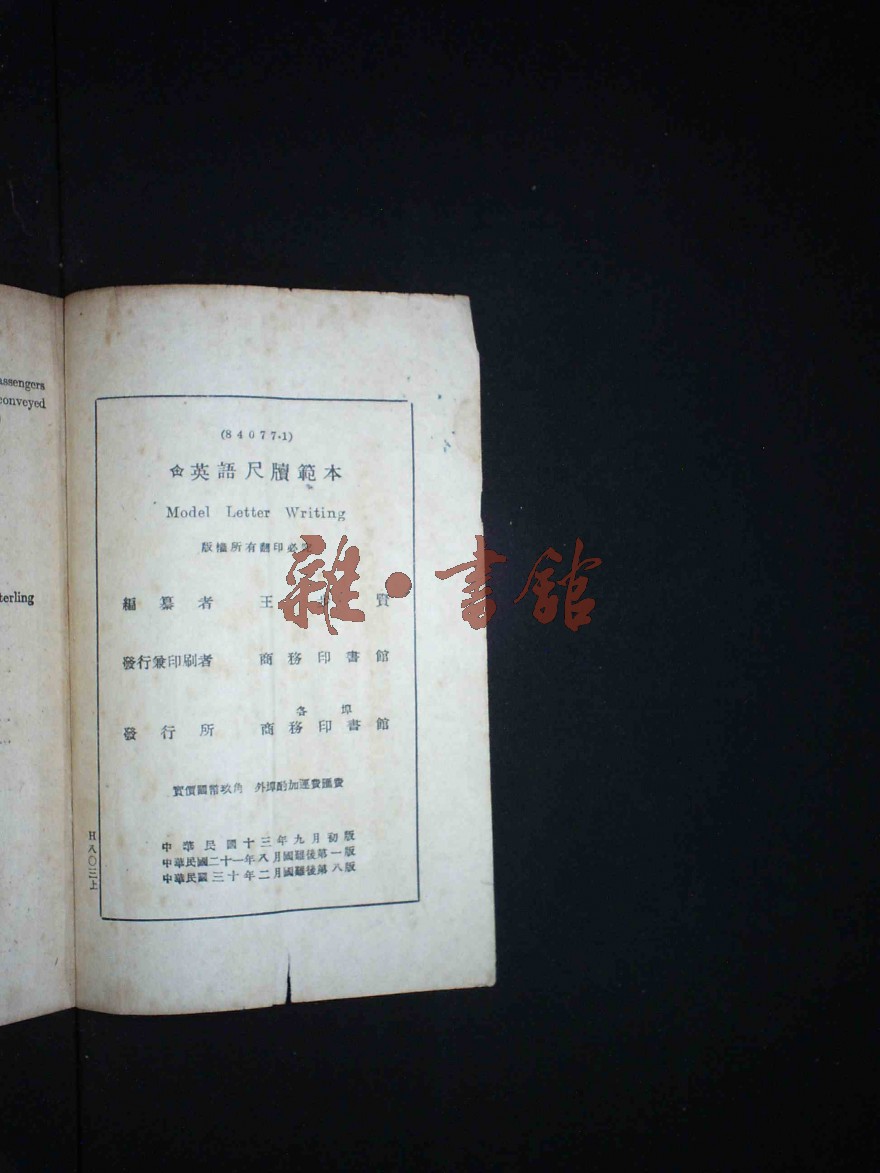 assengers
conveyed
terling
(84077·1)
英語尺牘範本
Model Letter Writing
版權所有翻印必究
編纂者 王 賢
發行兼印刷者 商務印書館
各埠
發行所 商務印書館
實價國幣玖角 外埠酌加運費匯費
中華民國十三年九月初版
中華民國二十一年八月國難後第一版
中華民國三十年二月國難後第八版
H八〇三上
雜·書館